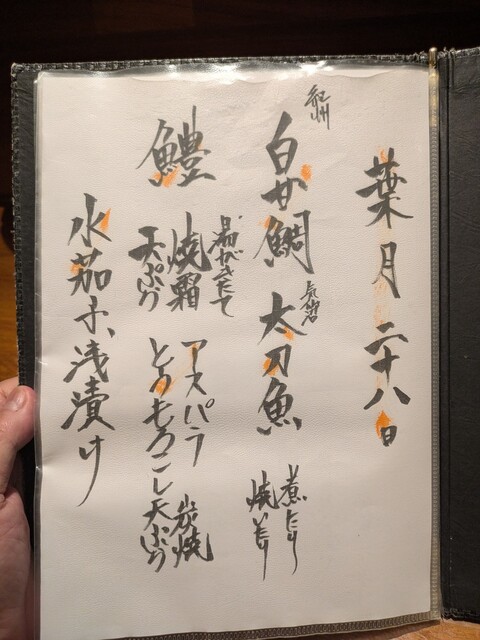 葉月二十八日
紀州
白甘鯛
気仙沼
太刀魚
煮たり
焼いたり
鱧
湯がきたて
焼霜
天ぷら
アスパラ 炭焼
とうもろこし天ぷら
水茄子浅漬け